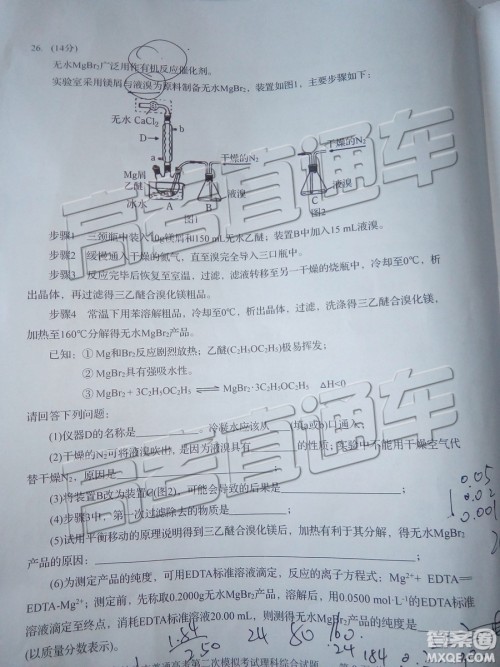 26. (14分)
无水MgBr₂广泛用作有机反应催化剂。
实验室采用镁屑与液溴为原料制备无水MgBr₂，装置如图1，主要步骤如下：
无水 CaCl₂
D
b
a
干燥的N₂
干燥的N₂
Mg屑
乙醚
冰水
A
B
液溴
C
液溴
图1
图2
步骤1 三颈瓶中装入10g镁屑和150 mL无水乙醚；装置B中加入15 mL液溴。
步骤2 缓慢通入干燥的氮气，直至溴完全导入三口瓶中。
步骤3 反应完毕后恢复至室温，过滤，滤液转移至另一干燥的烧瓶中，冷却至0℃，析
出晶体，再过滤得三乙醚合溴化镁粗品。
步骤4 常温下用苯溶解粗品，冷却至0℃，析出晶体，过滤，洗涤得三乙醚合溴化镁，
加热至160℃分解得无水MgBr₂产品。
已知：① Mg和Br₂反应剧烈放热；乙醚(C₂H₅OC₂H₅)极易挥发；
② MgBr₂具有强吸水性。
③ MgBr₂ + 3C₂H₅OC₂H₅ ⇌ MgBr₂·3C₂H₅OC₂H₅ △H<0
请回答下列问题：
(1)仪器D的名称是________。冷凝水应该从____(填a或b)口通入；
(2)干燥的N₂可将液溴吹出，是因为液溴具有______的性质；实验中不能用干燥空气代
替干燥N₂，原因是____________；
(3)将装置B改为装置C(图2)，可能会导致的后果是____________；
(4)步骤3中，第一次过滤除去的物质是________；
(5)试用平衡移动的原理说明得到三乙醚合溴化镁后，加热有利于其分解，得无水MgBr₂
产品的原因：____________；
(6)为测定产品的纯度，可用EDTA标准溶液滴定，反应的离子方程式：Mg²⁺ + EDTA══
EDTA-Mg²⁺；测定前，先称取0.2000g无水MgBr₂产品，溶解后，用0.0500 mol·L⁻¹的EDTA标准
溶液滴定至终点，消耗EDTA标准溶液20.00 mL，则测得无水MgBr₂产品的纯度是________
(以质量分数表示)。
0.05
0.001
1.84
2.50
24
80
160
24
184
普通高考第二次模拟考试理科综合试题
高考直通车
高考直通车
答案圈
MXQE.COM